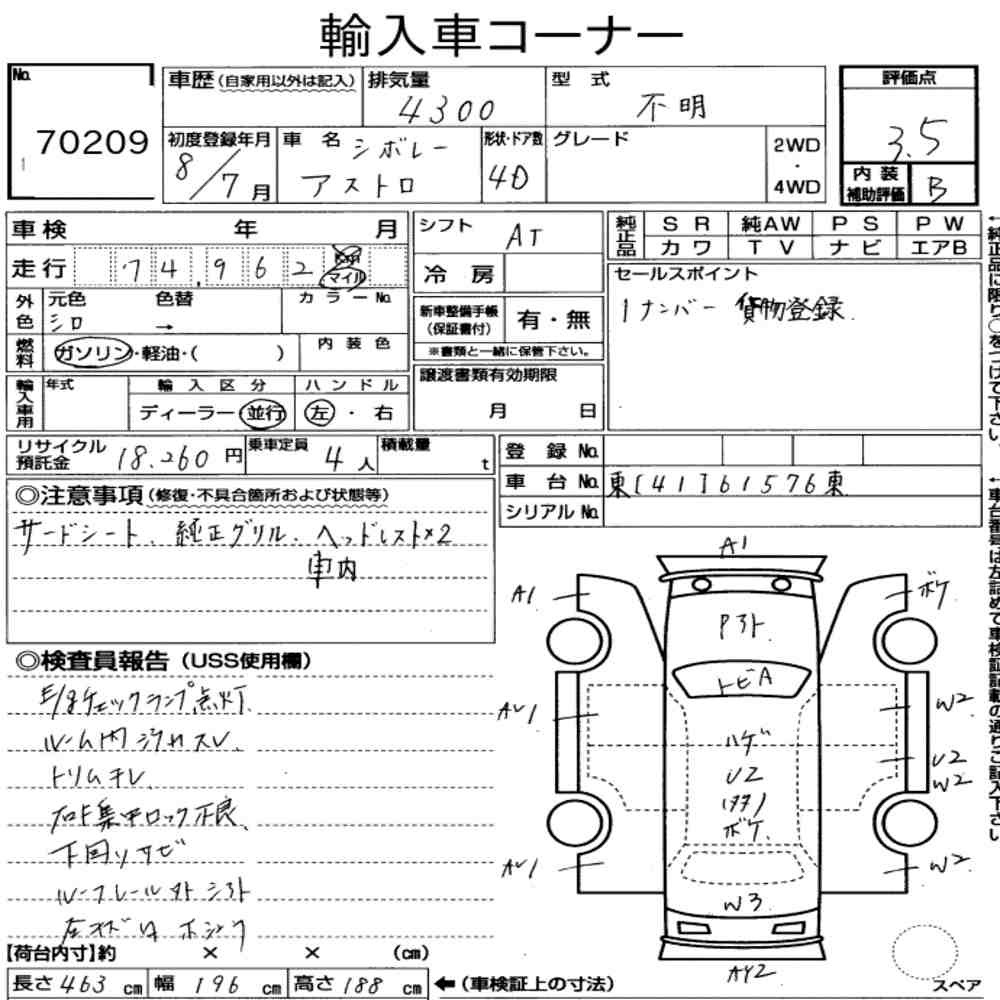 輸入車コーナー
No. 70209
車歴(自家用以外は記入) 排気量 4300 型式 不明
評価点 3.5
初度登録年月 8/7月 車名 シボレー アストロ 形状・ドア数 4D グレード 2WD・4WD
内装補助評価 B
車検 年 月
走行 74,962 マイル
シフト AT
冷房
純正品 SR 純AW PS PW
カワ TV ナビ エアB
外色 元色 シロ 色替 → カラーNo.
燃料 ガソリン・軽油・( ) 内装色
新車整備手帳(保証書付) 有・無
※書類と一緒に保管下さい。
セールスポイント
1ナンバー 貨物登録
輸入車用 年式 輸入区分 ハンドル
ディーラー 並行 左・右
譲渡書類有効期限
月 日
リサイクル預託金 18.260円 乗車定員 4人 積載量 t
登録No.
車台No. 東[41]61576東
シリアルNo.
◎注意事項(修復・不具合箇所および状態等)
サードシート、純正グリル、ヘッドレスト×2
車内
◎検査員報告(USS使用欄)
E/gチェックランプ点灯
ルーム内 シ
トリムキレ
集中ロック不良
下回りサビ
ルーフレール
左
【荷台内寸】約 × × (cm)
長さ463cm 幅196cm 高さ188cm ←(車検証上の寸法)
A1
A1
ボケ
トビA
W2
ハゲ
U2
U2
W2
ボケ
W2
W3
AY2
スペア
←純正品に限り○をつけて下さい。
←車台番号は左詰めで車検証記載の通りご記入下さい